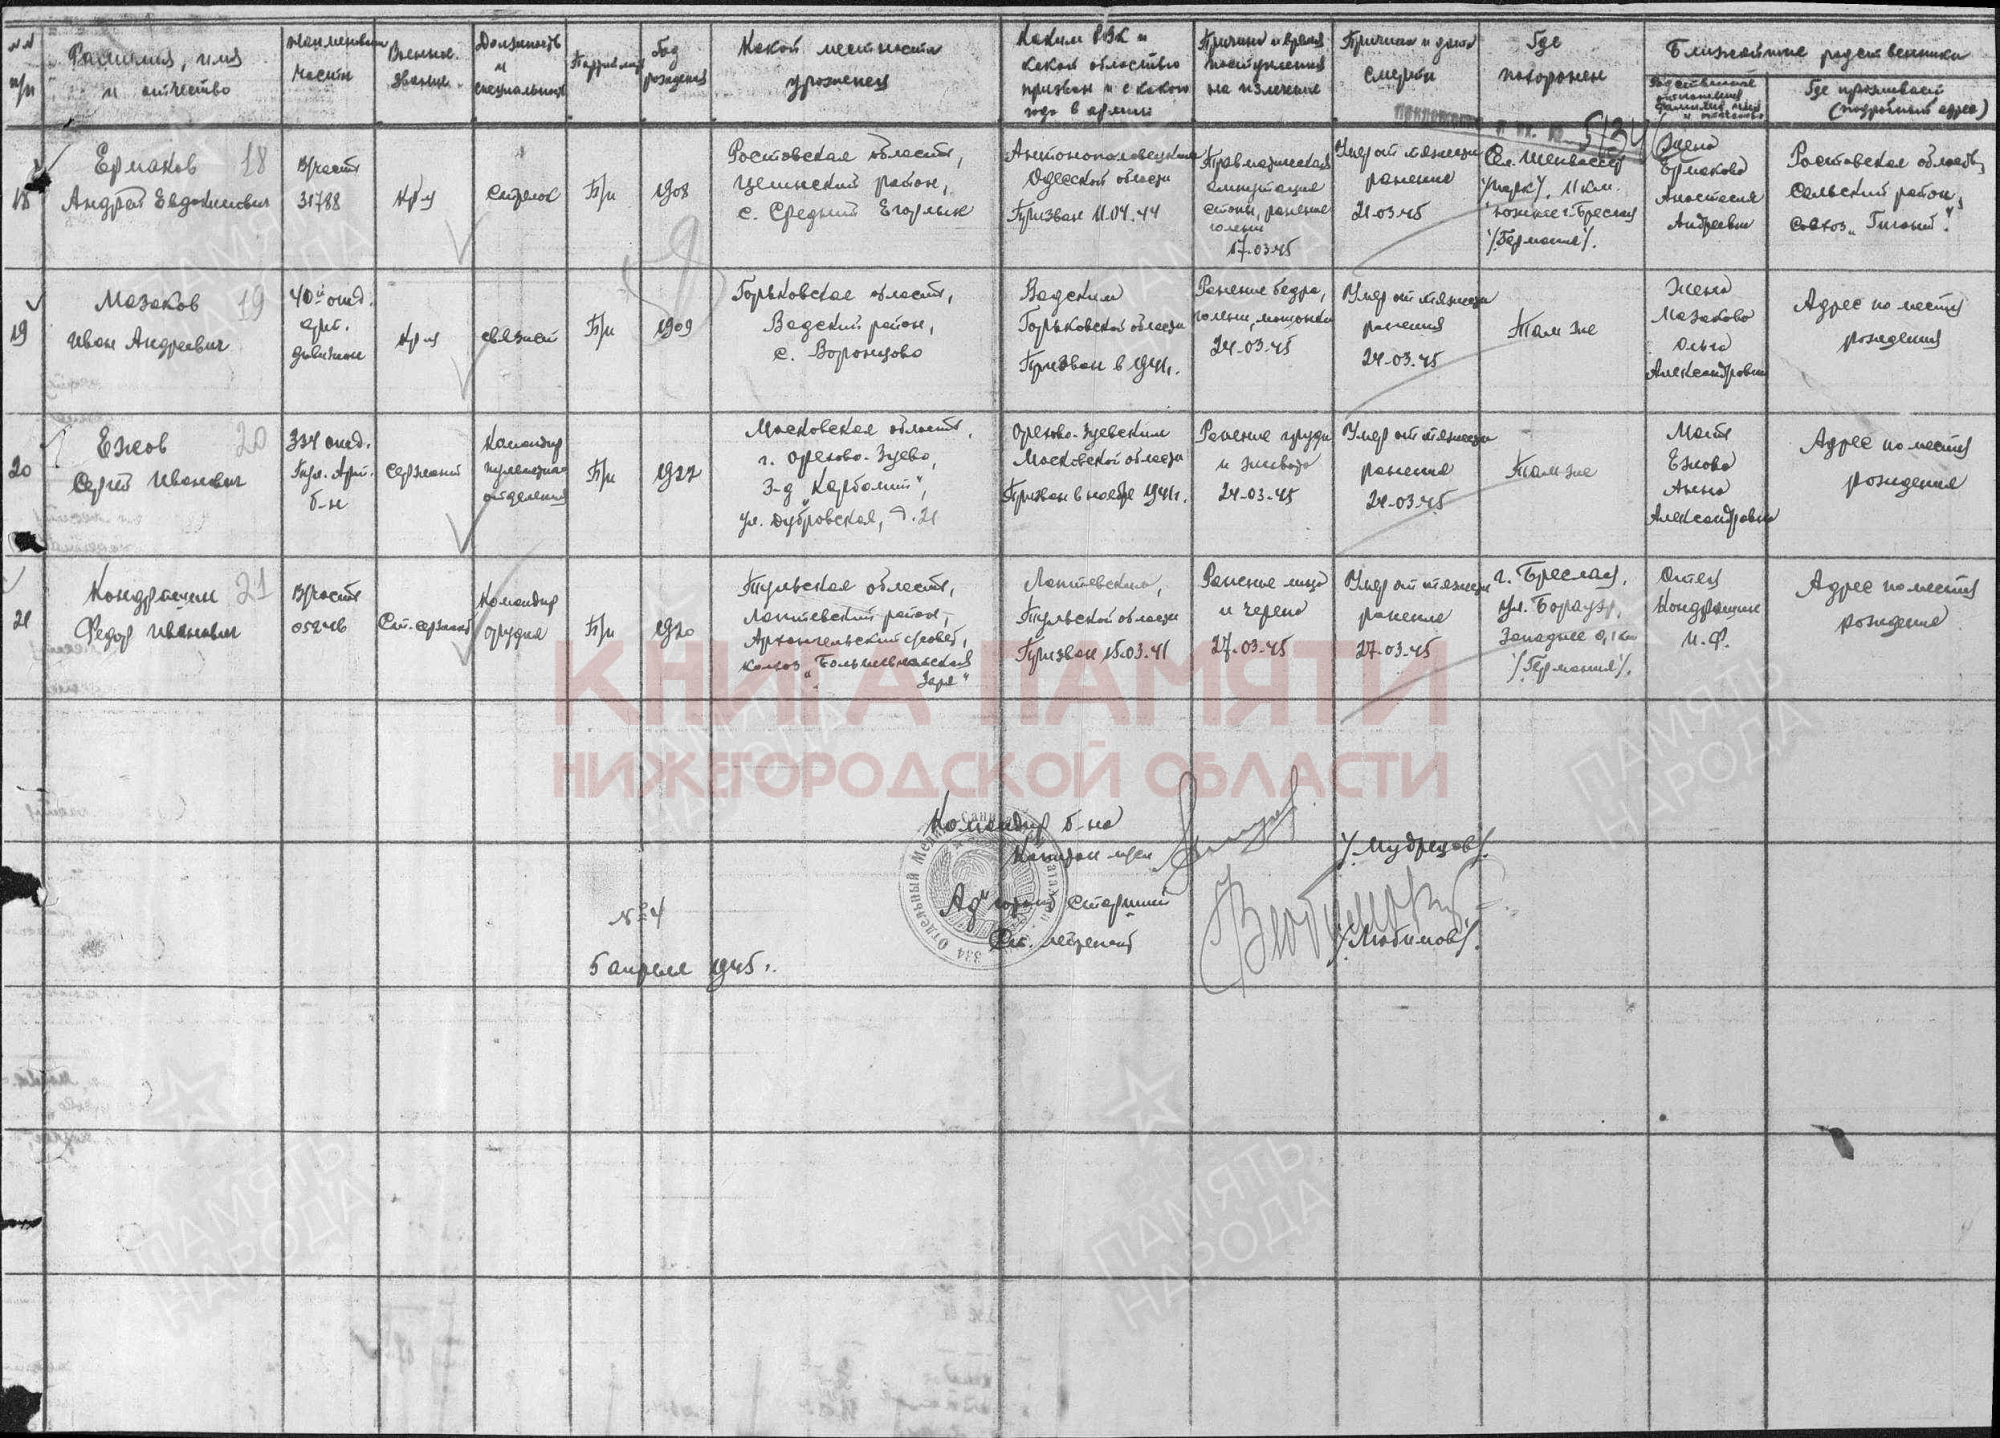 №№ п/п
Фамилия, имя
и отчество
Наименован.
части
Военное
звание
Должность
и
специальность
Партийн.
Год
рождения
Какой местности
уроженец
Каким РВК и
какой областью
призван и с какого
года в армии
Причина и время
поступления
на излечение
Причина и дата
смерти
Где
похоронен
Ближайшие родственники
Родственные
отношения
фамилия, имя
и отчество
Где проживает
(подробный адрес)
5134
18
Ермаков 18
Андрей Евдокимович
В/часть
31788
Кр-ц
Стрелок
Б/п
1908
Ростовская область,
Целинский район,
с. Средний Егорлык
Антонополовецким
Одесской области
Призван 11.04.44
Травматическая
ампутация
стопы, ранение
голени
17.03.45
Умер от тяжести
ранения
21.03.45
/Парк/. 11 км.
южнее г. Бреслау
/Германия/.
Жена
Ермакова
Анастасия
Андреевна
Ростовская область,
Сальский район,
совхоз „Гигант“.
19
Мазаков 19
Иван Андреевич
40й отд.
арт.
дивизион
Кр-ц
связист
Б/п
1909
Горьковская область,
Вадский район,
с. Воронцово
Вадским
Горьковской области
Призван в 1941г.
Ранение бедра,
голени, мошонки
24.03.45
Умер от тяжести
ранения
24.03.45
Там же
Жена
Мазакова
Ольга
Александровна
Адрес по месту
рождения
20
Ежов 20
Сергей Иванович
334 отд.
Пул.-Арт.
б-н
Сержант
Командир
пулеметного
отделения
Б/п
1922
Московская область,
г. Орехово-Зуево,
З-д „Карболит“,
ул. Дубровская, д. 21
Орехово-Зуевским
Московской области
Призван в ноябре 1941г.
Ранение груди
и живота
24.03.45
Умер от тяжести
ранения
24.03.45
Там же
Мать
Ежова
Анна
Александровна
Адрес по месту
рождения
21
Кондрашин 21
Федор Иванович
В/часть
05246
Ст. сержант
Командир
орудия
Б/п
1920
Тульская область,
Лаптевский район,
Архангельский с/совет,
колхоз „Большевистская
Заря“
Лаптевским,
Тульской области
Призван 15.03.41
Ранение лица
и черепа
27.03.45
Умер от тяжести
ранения
27.03.45
г. Бреслау,
ул. Борауэр,
Западнее 0,1 км
/Германия/.
Отец
Кондрашин
И. Ф.
Адрес по месту
рождения
КНИГА ПАМЯТИ
НИЖЕГОРОДСКОЙ ОБЛАСТИ
Командир б-на
Капитан м/сл
/Мудрецов/.
Адъютант старший
Ст. лейтенант
/Любимов/.
№ 24
5 апреля 1945г.
ПАМЯТЬ
НАРОДА